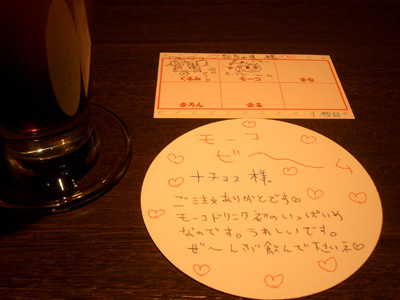 なちょす 様
くるみ
モーコ
まな
まろん
まる
1枚目
モーコ
ビ〜
ナチョス 様
ご注文ありがとです♡
モーコドリンク初のいっぱいめ
なのです。うれしいです。
ぜ〜んぶ飲んで下さいネ♡